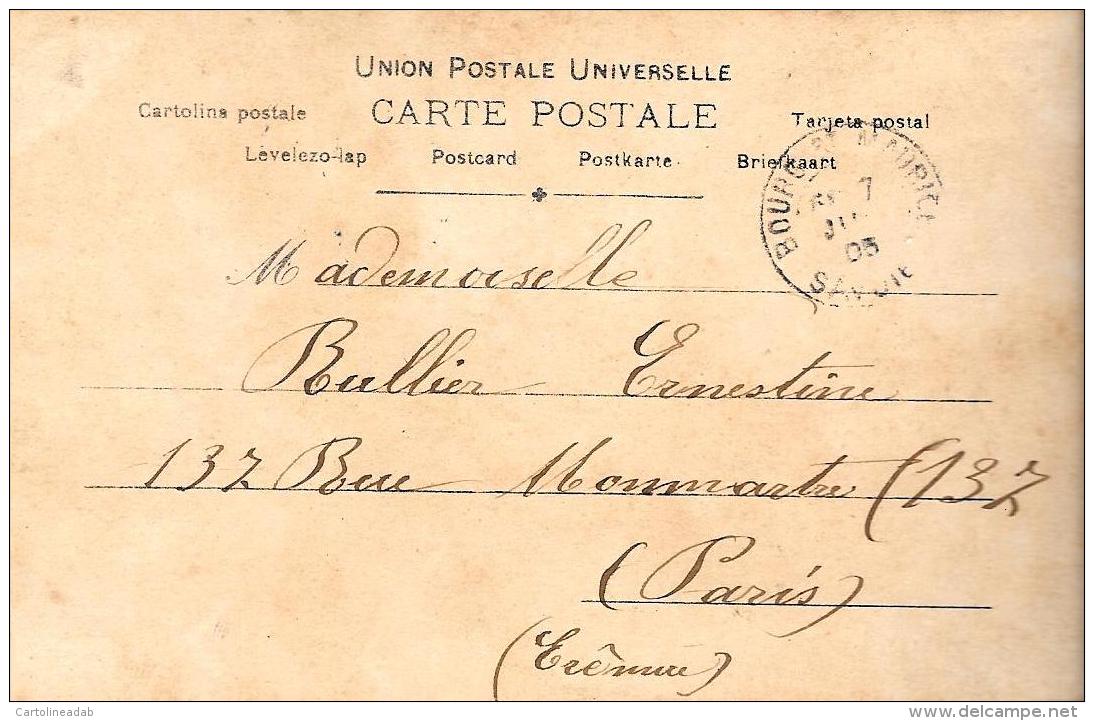 UNION POSTALE UNIVERSELLE
CARTE POSTALE
Cartolina postale
Tarjeta postal
Levelezo-lap Postcard Postkarte Briefkaart
BOURG-ST MAURICE
7
05
SAVOIE
Mademoiselle
Rullier Ernestine
137 Rue Monmartre (137
(Paris)
(Crêmerie)
Cartolineadab
www.delcampe.net